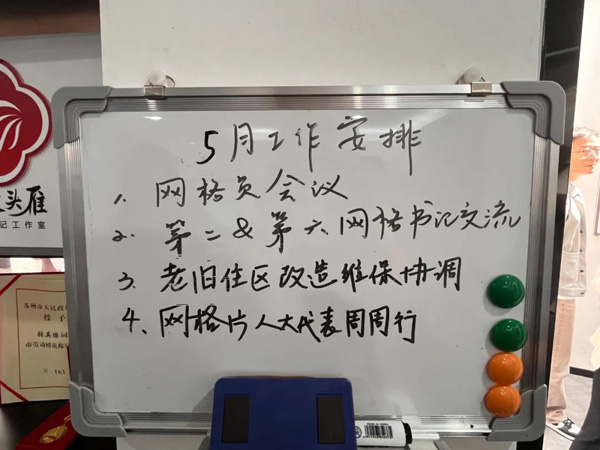 5月工作安排
1. 网格员会议
2. 第二&第六网格书记交流
3. 老旧住区改造维保协调
4、网格片人大代表周周行
头雁
记工作室
苏州市人民政府
授予